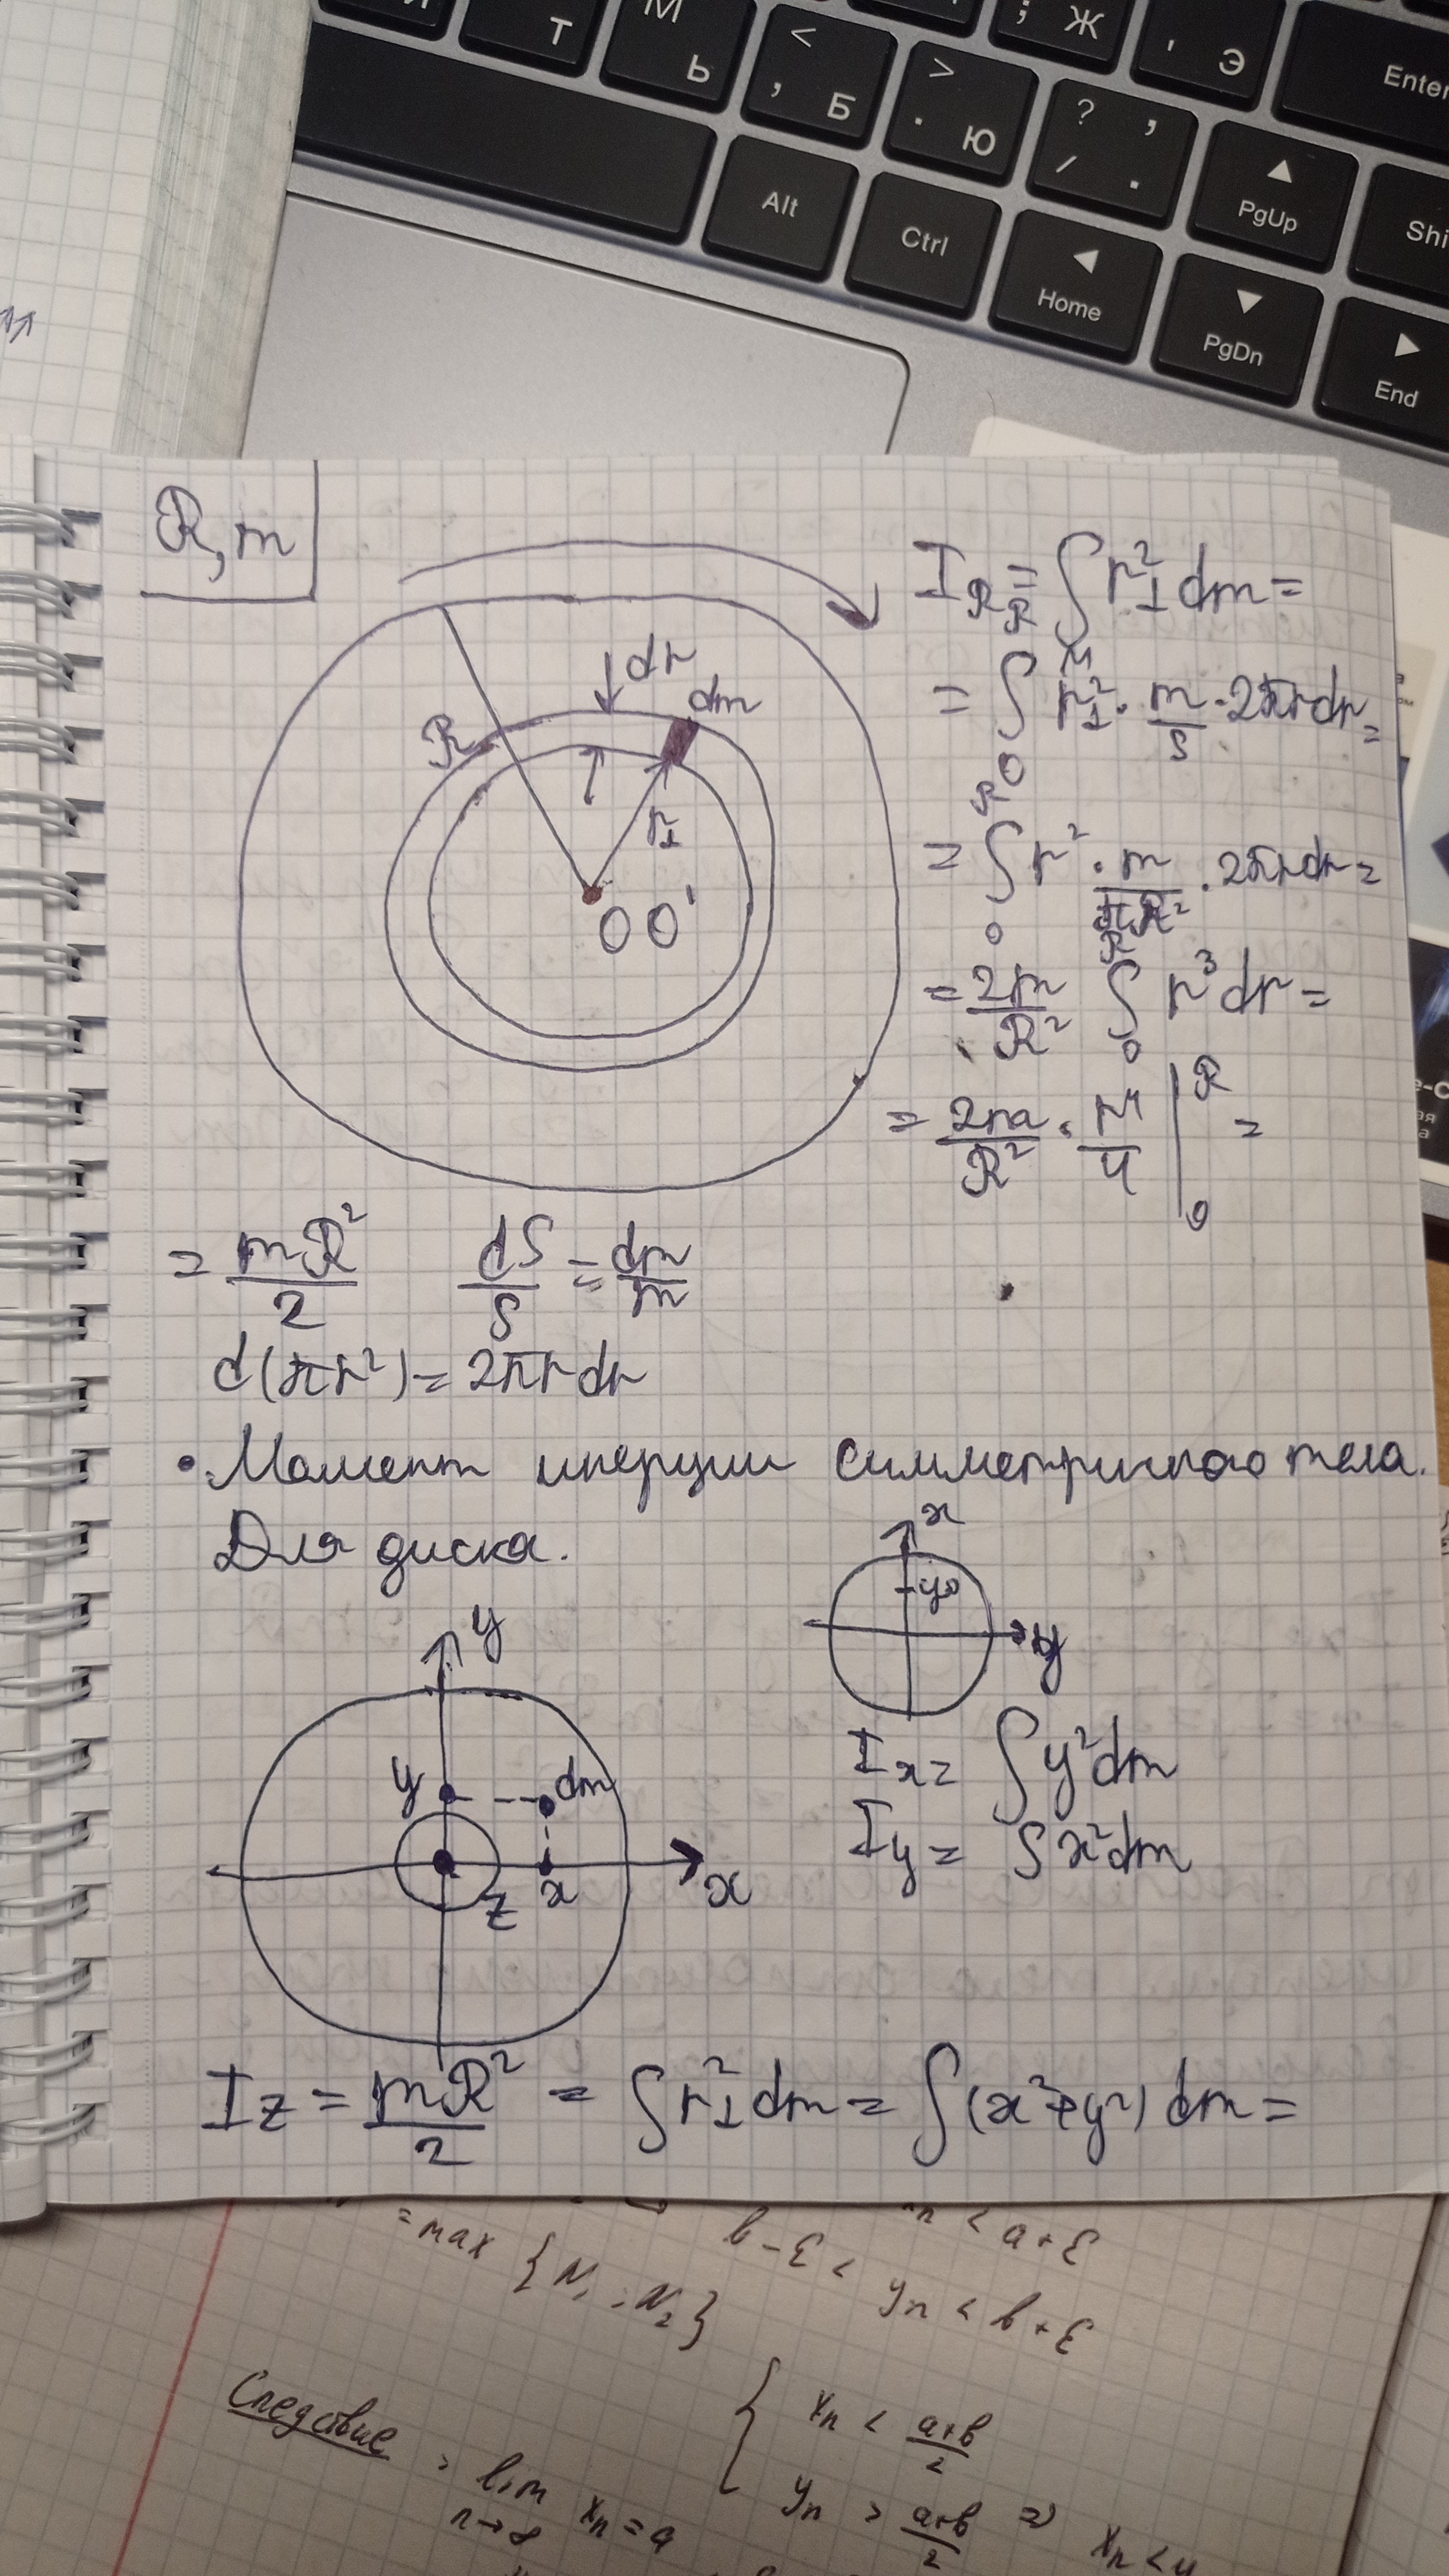 Т
М Ь
< , Б
> . Ю
; Ж
' Э
? , / .
Enter
Alt
Ctrl
Home
PgUp
PgDn
Shi
End
R, m
dr
dm
R
r⊥
OO'
I_R = ∫ r⊥² dm =
= ∫₀ᴿ r⊥² · m/S · 2πrdr =
= ∫₀ᴿ r² · m/πR² · 2πrdr =
= 2m/R² ∫₀ᴿ r³ dr =
= 2m/R² · r⁴/4 |₀ᴿ =
= mR²/2 dS/S = dm/m
d(πr²) = 2πrdr
• Момент инерции симметричного тела.
Для диска.
x
y
y
y
dm
x
z
x
I_x = ∫ y² dm
I_y = ∫ x² dm
I_z = mR²/2 = ∫ r⊥² dm = ∫ (x² + y²) dm =
= max {N₁, N₂}
yₙ < b + ε
Следствие
lim xₙ = a
n → ∞
xₙ < a+b/2
yₙ > a+b/2 ⇒